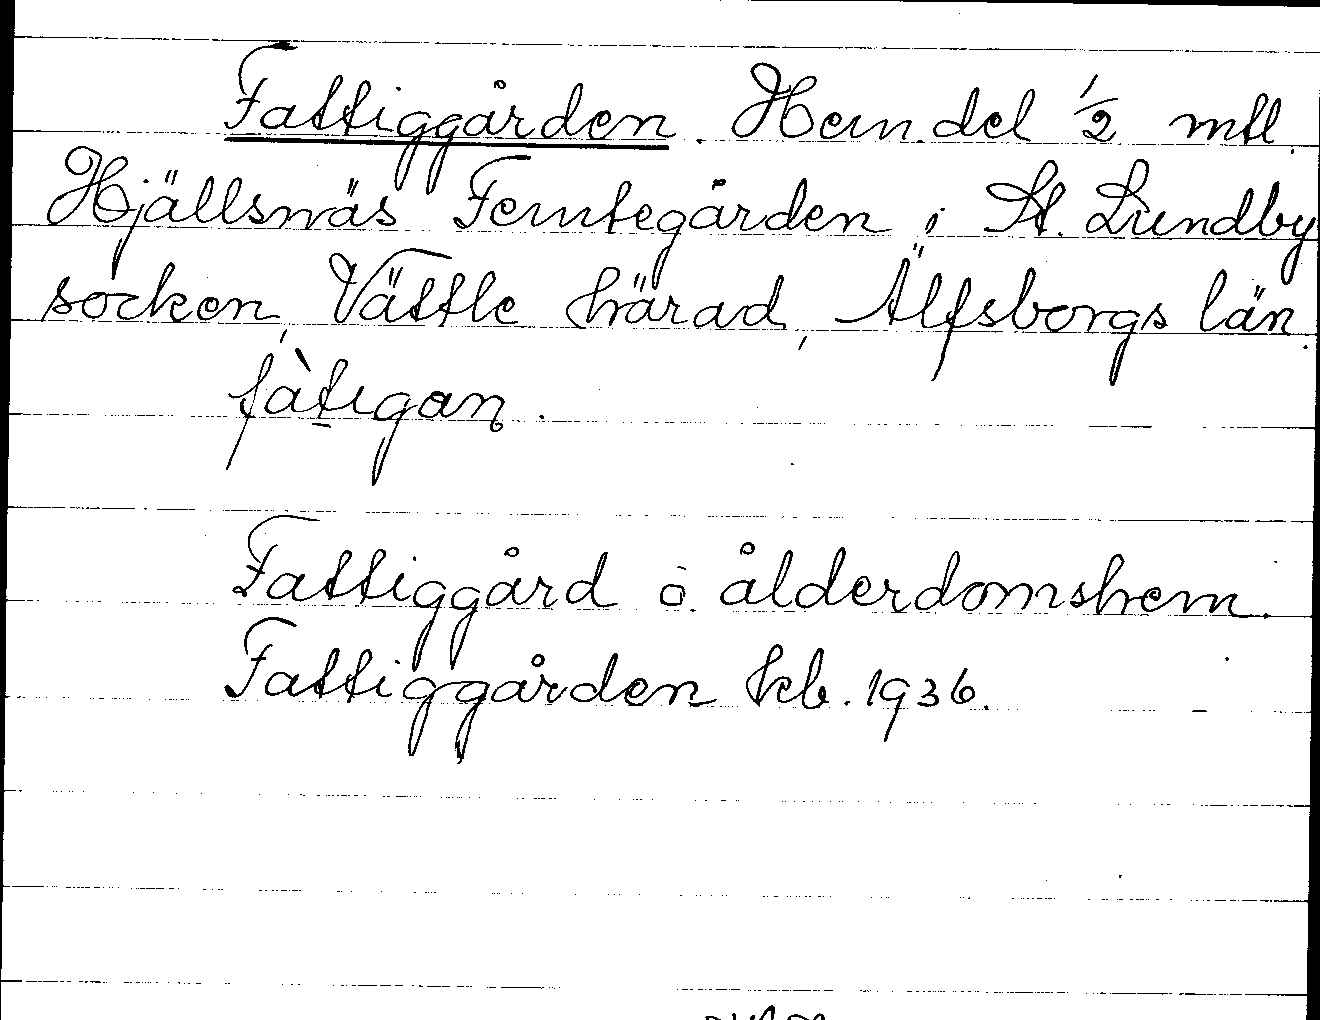 Fattiggården. Hem.del 1/2 mtl.
Hjällsnäs Femtegården i St. Lundby
socken, Vättle härad, Älfsborgs län.
fàtigan.
Fattiggård o. ålderdomshem.
Fattiggården kb. 1936.